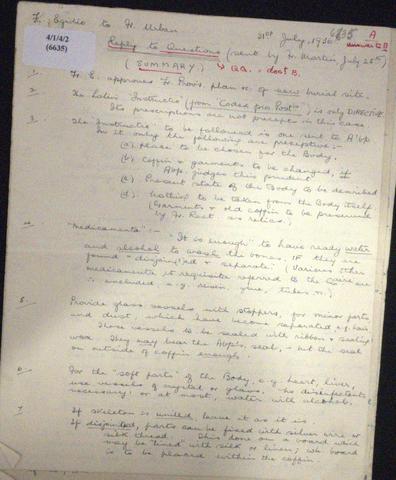 Fr. Egidio to Fr. Urban
4/1/4/2
(6635)
31st July, 1936
6635
A
answer to B
Reply to Questions (sent by Fr. Martin, July 26th)
(SUMMARY) → QQ. = doct B.
1. Fr. E. approves Fr. Prov's. plan re. of new burial site.
2. The Latin "Instructio" (from "Codex pro Post") is only DIRECTIVE
Its prescriptions are not precept in this case
3. The "Instructio" to be followed is one sent to A'bp
In it only the following are preceptive:-
(a) Place to be chosen for the Body.
(b) Coffin & garments to be changed, if
Abp. judges this prudent
(c) Present state of the Body to be described
(d) Nothing to be taken from the Body itself
(Garments & old coffin to be preserved
by Fr. Rect as relics.)
4. "Medicaments":-
"It is enough" to have ready water
and alcohol to wash the bones, IF they are
found "disjoined & separate" (Various other
medicaments & requisites referred to the are
∴ excluded e.g. resin, )
5. Provide glass vessels, with stoppers, for minor parts
and dust, which have become separated e.g. hair
These vessels to be sealed with ribbon & sealing
wax. They may bear the Abp's. seal, - but the seal
on outside of coffin enough.
6. For the "soft parts" of the Body, e.g. heart, liver,
use vessels of crystal or glass. No disinfectants
necessary: or at most, water with alcohol.
7. If skeleton is united, leave it as it is
If disjointed, parts can be fixed with silver wire or
silk thread. This done on a board which
may be lined with silk or linen; wh. board
is to be placed within the coffin.